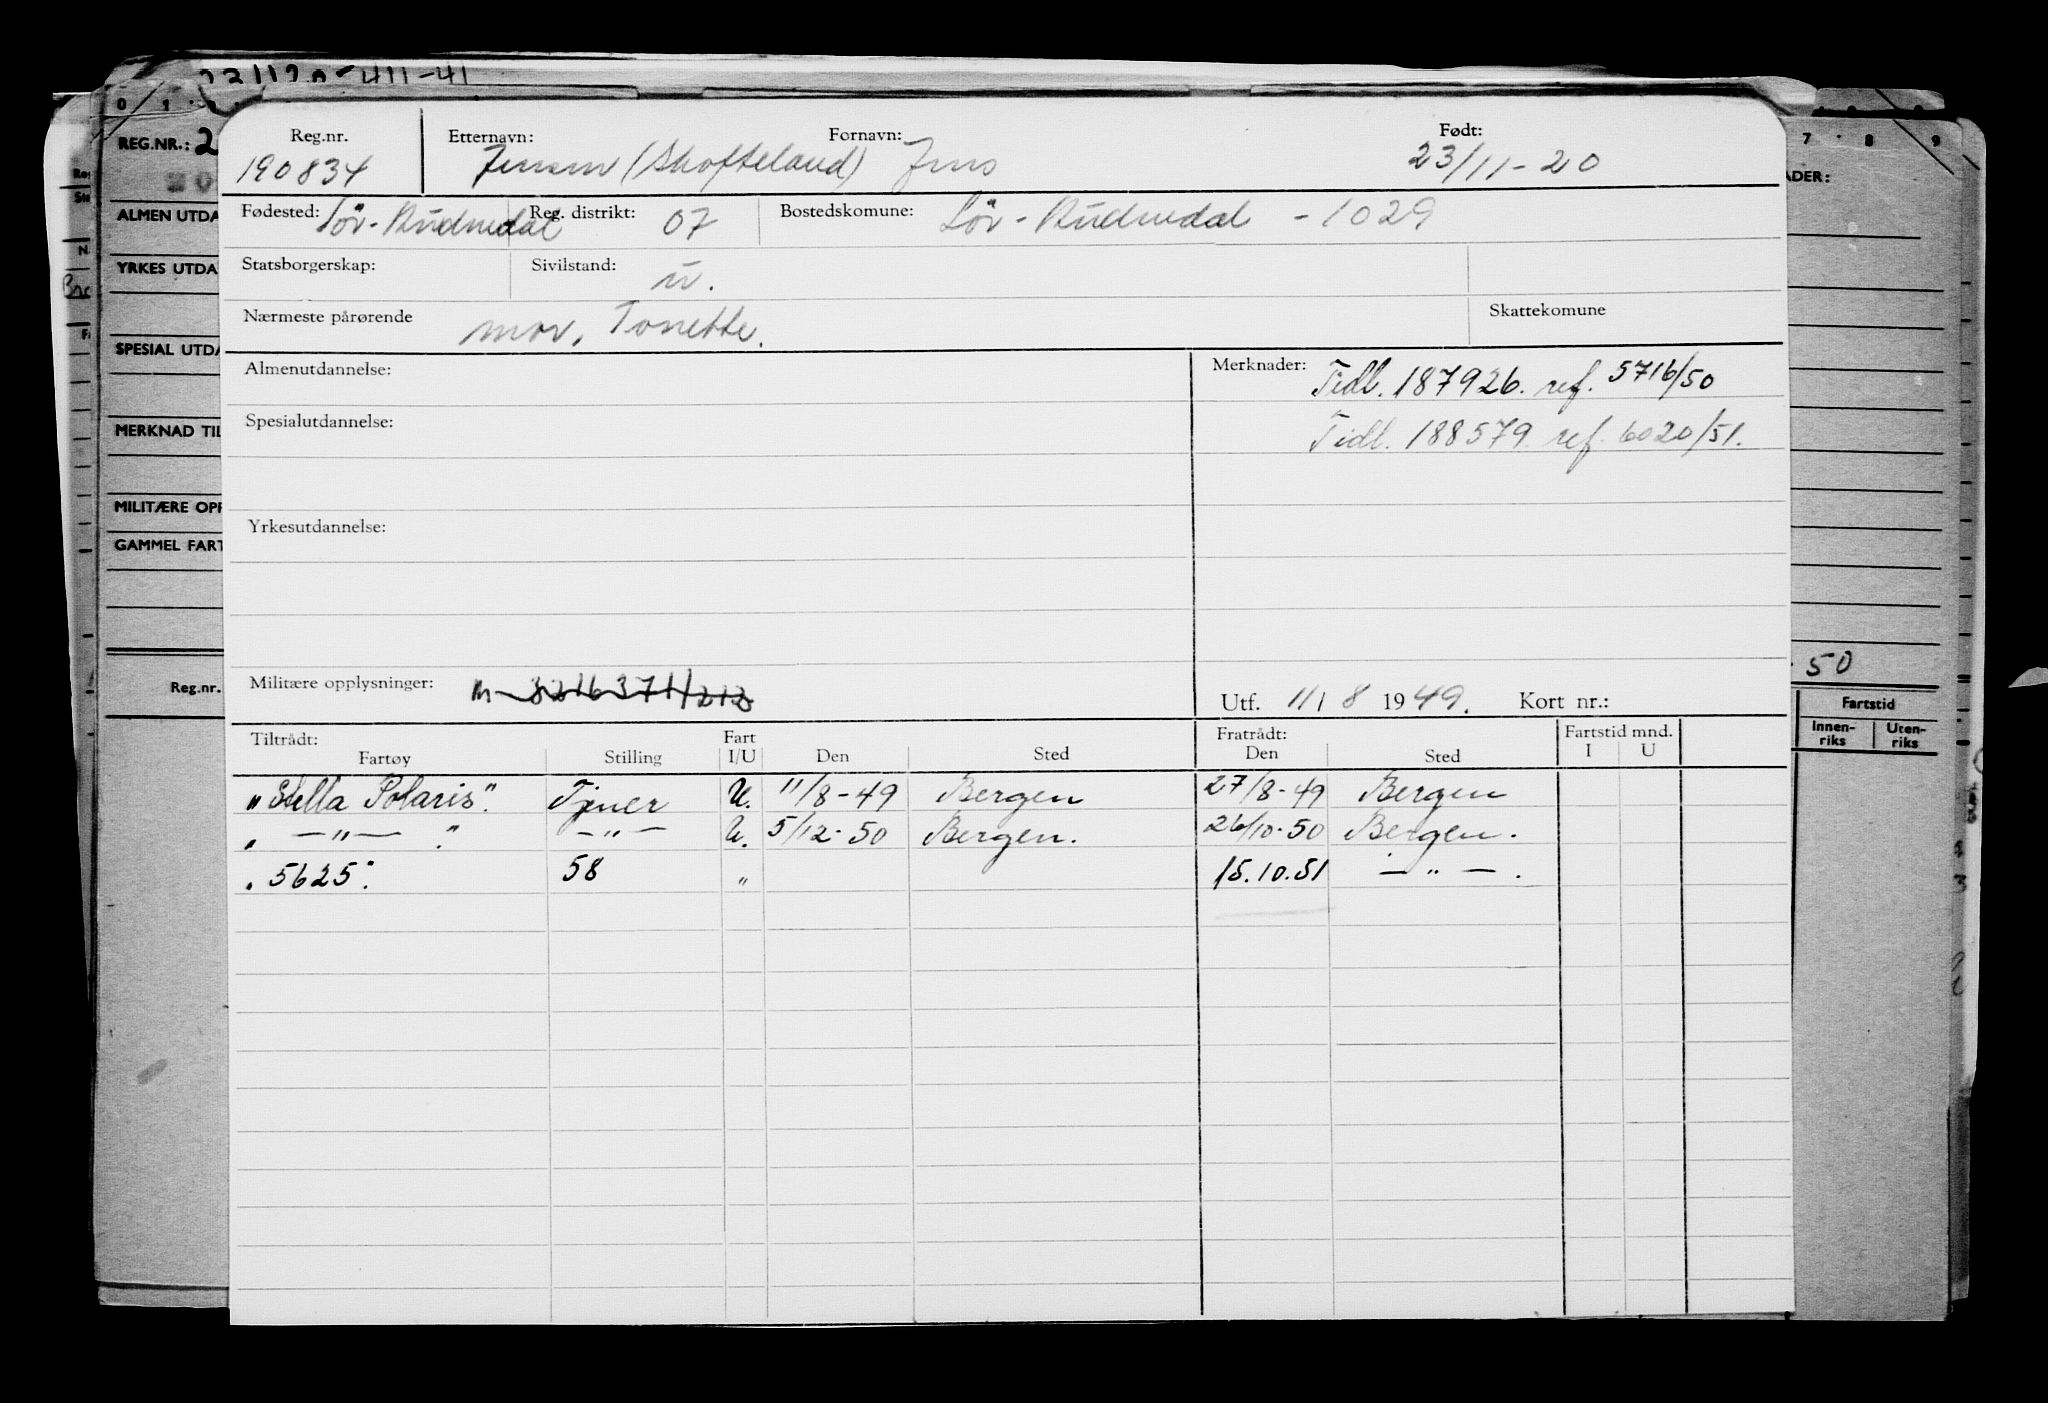 23/11 20 - 411-41
0 1
REG.NR.: 2
ALMEN UTDA
YRKES UTDA
SPECIAL UTDA
MERKNAD TIL
MILITÆRE OPP
GAMMEL FART
Reg.nr.
Reg.nr. Etternavn: Fornavn: Født:
190834 Jensen (Skofteland) Jens 23/11-20
Fødested: Sör-Audnedal Reg. distrikt: 07 Bostedskomune: Sör-Audnedal - 1029
Statsborgerskap: Sivilstand: ü.
Nærmeste pårørende mor, Tonette. Skattekomune
Almenutdannelse: Merknader: Tidl. 187926. ref. 5716/50
Spesialutdannelse: Tidl. 188579. ref. 6020/51.
Yrkesutdannelse:
Militære opplysninger: m 3216371/212 Utf. 11/8 1949. Kort nr.:
Tiltrådt: Fart Fratrådt: Fartstid mnd.
Fartøy Stilling I/U Den Sted Den Sted I U
"Stella Polaris". Tjener U. 11/8-49 Bergen 27/8-49 Bergen
" — " — " . — " — U. 5/12-50 Bergen. 26/10-50 Bergen.
" 5625". 58 " 15.10.51 — " — .
7 8 9
ADER:
50
Fartstid
Innen-riks Uten-riks